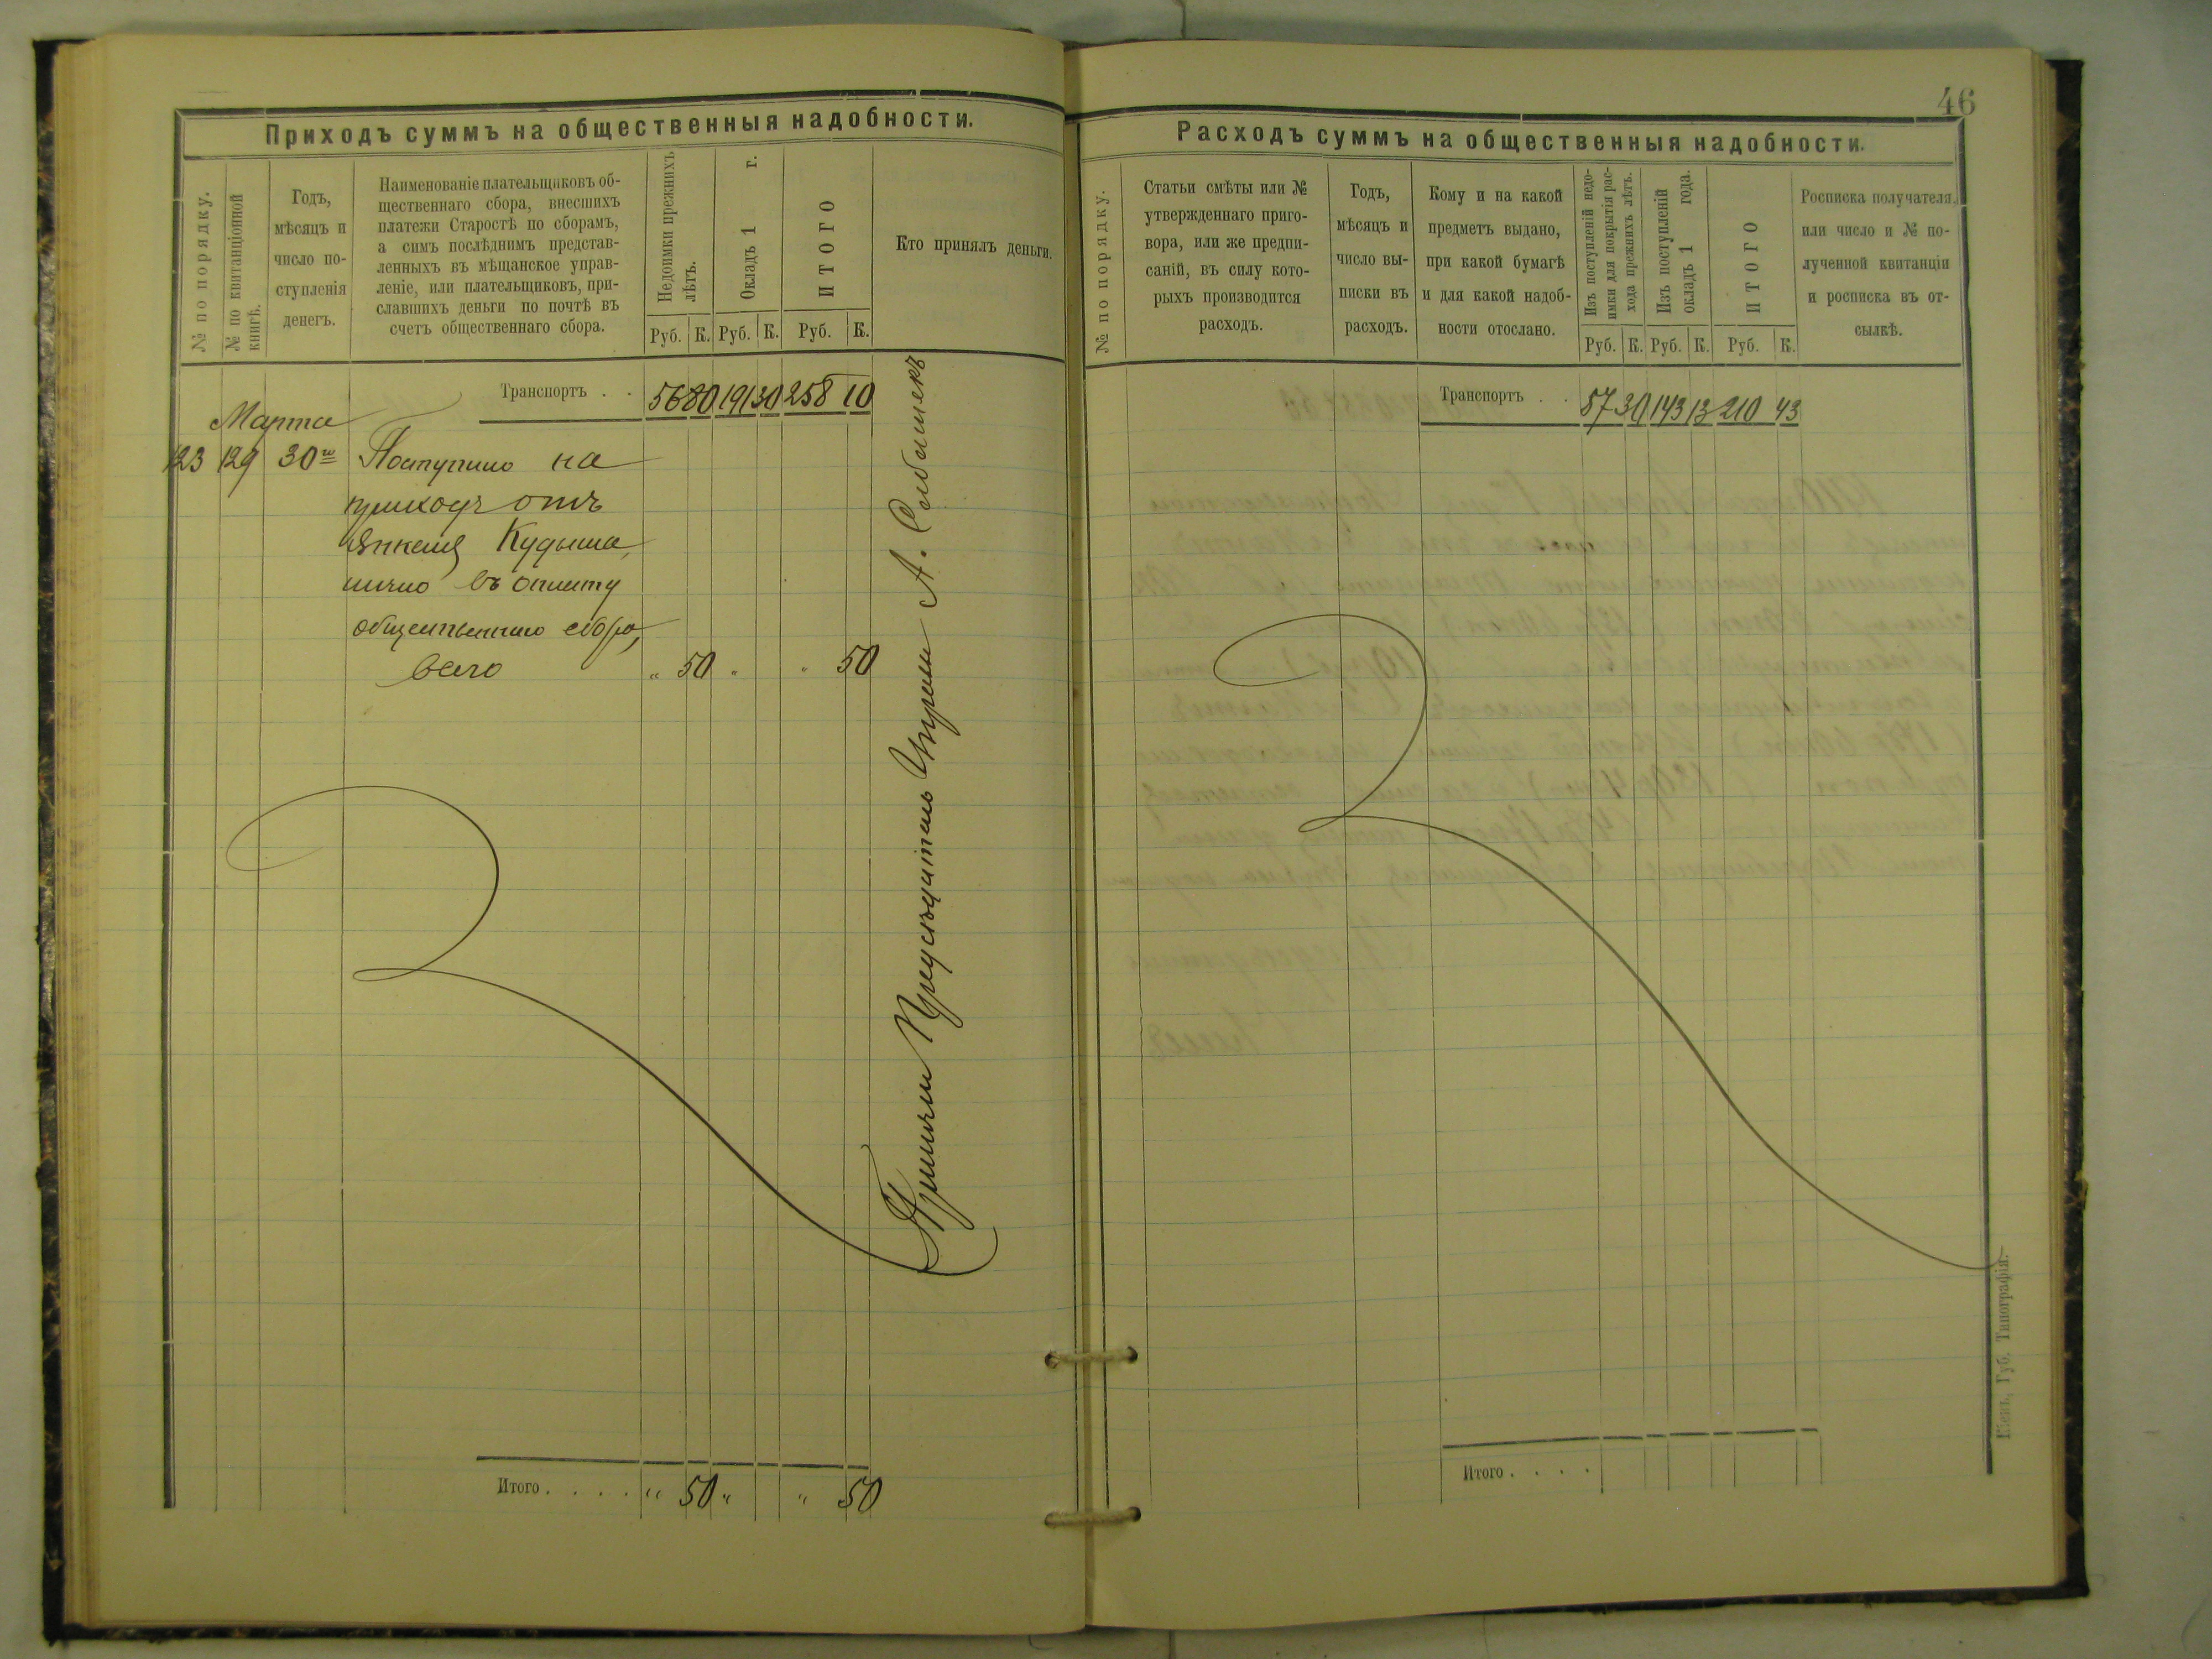 46
Приходъ суммъ на общественныя надобности.
№ по порядку.
№ по квитанціонной
книгѣ.
Годъ,
мѣсяцъ и
число по-
ступленія
денегъ.
Наименованіе плательщиковъ об-
щественнаго сбора, внесшихъ
платежи Старостѣ по сборамъ,
а симъ послѣднимъ представ-
ленныхъ въ мѣщанское управ-
леніе, или плательщиковъ, при-
славшихъ деньги по почтѣ въ
счетъ общественнаго сбора.
Недоимки прежнихъ
лѣтъ.
Окладъ 1 г.
ИТОГО
Кто принялъ деньги.
Руб. К. Руб. К. Руб. К.
Транспортъ . . 56 80 191 30 258 10
Марта
123 129 30го Поступило на
приходъ отъ
Янкеля Кудыша,
лично въ оплату
общественнаго сбора,
всего " 50 " " 50
Приняли Предсѣдатель
Итого . . . . " 50 " " 50
Расходъ суммъ на общественныя надобности.
№ по порядку.
Статьи смѣты или №
утвержденнаго приго-
вора, или же предпи-
саній, въ силу кото-
рыхъ производится
расходъ.
Годъ,
мѣсяцъ и
число вы-
писки въ
расходъ.
Кому и на какой
предметъ выдано,
при какой бумагѣ
и для какой надоб-
ности отослано.
Изъ поступленій недо-
имки для покрытія рас-
хода прежнихъ лѣтъ.
Изъ поступленій
окладъ 1 года.
ИТОГО
Росписка получателя,
или число и № по-
лученной квитанціи
и росписка въ от-
сылкѣ.
Руб. К. Руб. К. Руб. К.
Транспортъ . . 57 30 143 13 210 43
Итого . . . .
Кіевъ, Губ. Типографія.